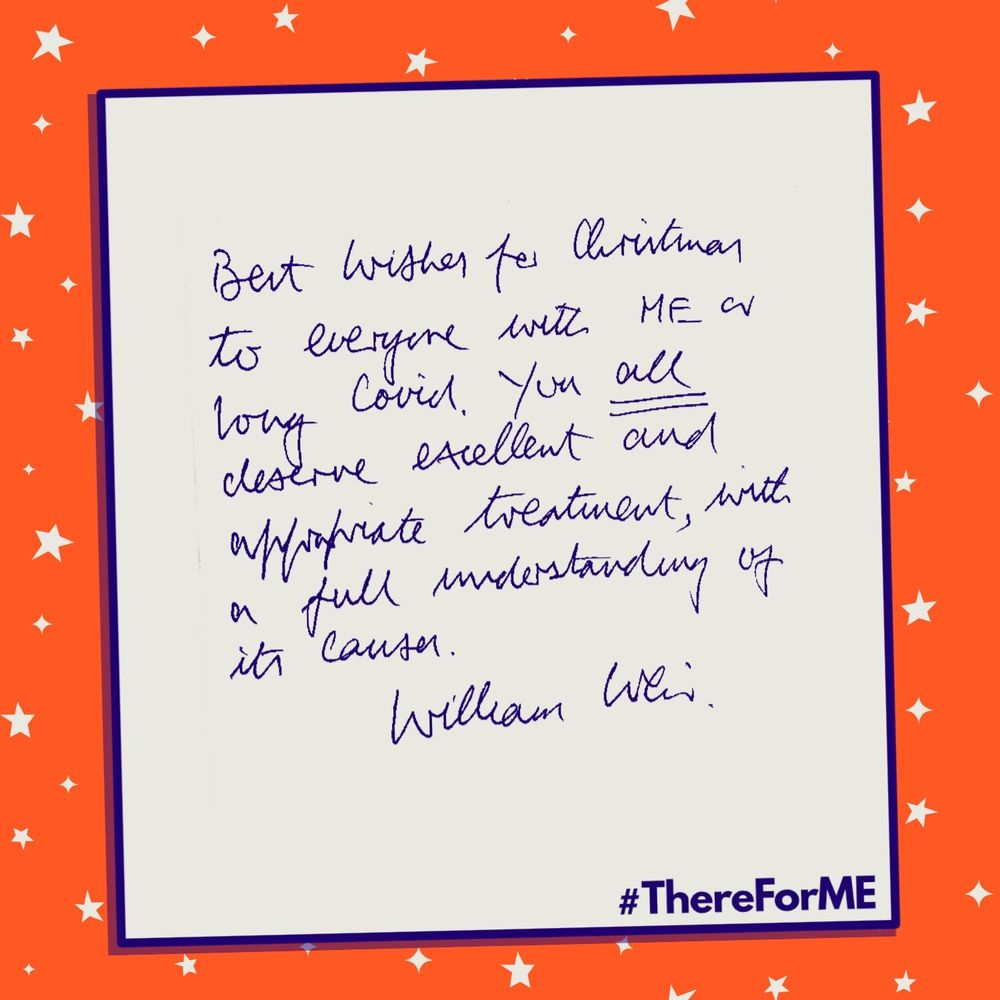 Best Wishes for Christmas
to everyone with ME or
long Covid. You all
deserve excellent and
appropriate treatment, with
a full understanding of
its causes.
William Weir.
#ThereForME